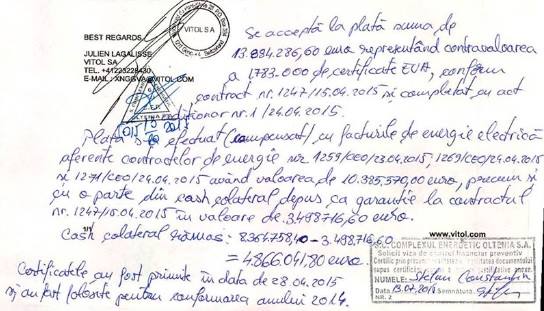 BEST REGARDS
JULIEN LAGALISSE
VITOL SA
TEL. +41223228430
VITOL SA
Se acceptă la plată suma de
13.884.286,60 euro reprezentând contravaloarea
a 1783.000 de certificate EUA, conform
contract nr. 1247/15.04.2015 si completat cu act
adițional nr. 1/24.04.2015.
Plată s-a efectuat (compensat) cu facturile de energie electrică
aferente contractelor de energie nr 1259/CEO/23.04.2015, 1269/CEO/24.04.2015
si 1271/CEO/24.04.2015 având valoarea de 10.385.570,00 euro, precum si
cu o parte din cash colateral depus ca garantie la contractul
nr. 1247/15.04.2015 în valoare de 3.498716,60 euro.
Cash colateral rămas: 8.364.758,40 - 3.498.716,60
= 4.866.041,80 euro.
Certificatele au fost primite în data de 28.04.2015
si au fost folosite pentru conformarea anului 2014.
www.vitol.com
S.C. COMPLEXUL ENERGETIC OLTENIA S.A.
Solicit viza de control financiar preventiv
NUMELE: Stefan Constantin
Data 13.07.2015 Semnătura
NR. 2